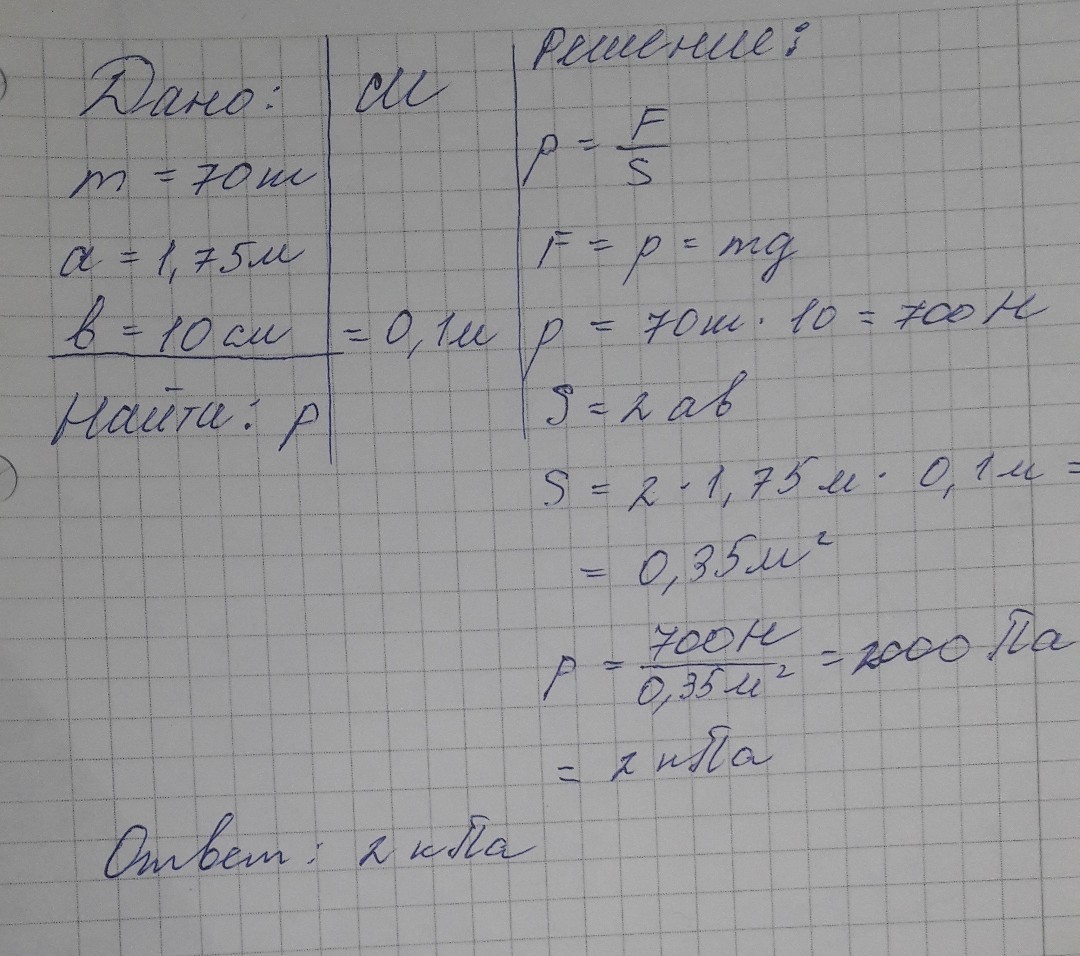 Дано:
m = 70т
a = 1,75м
b = 10 см
Найти: p
СИ
= 0,1м
Решение:
p = F/S
F = p = mg
p = 70т · 10 = 700 Н
S = 2ab
S = 2 · 1,75 м · 0,1м =
= 0,35м²
p = 700Н/0,35м² = 2000 Па
= 2 кПа
Ответ: 2 кПа